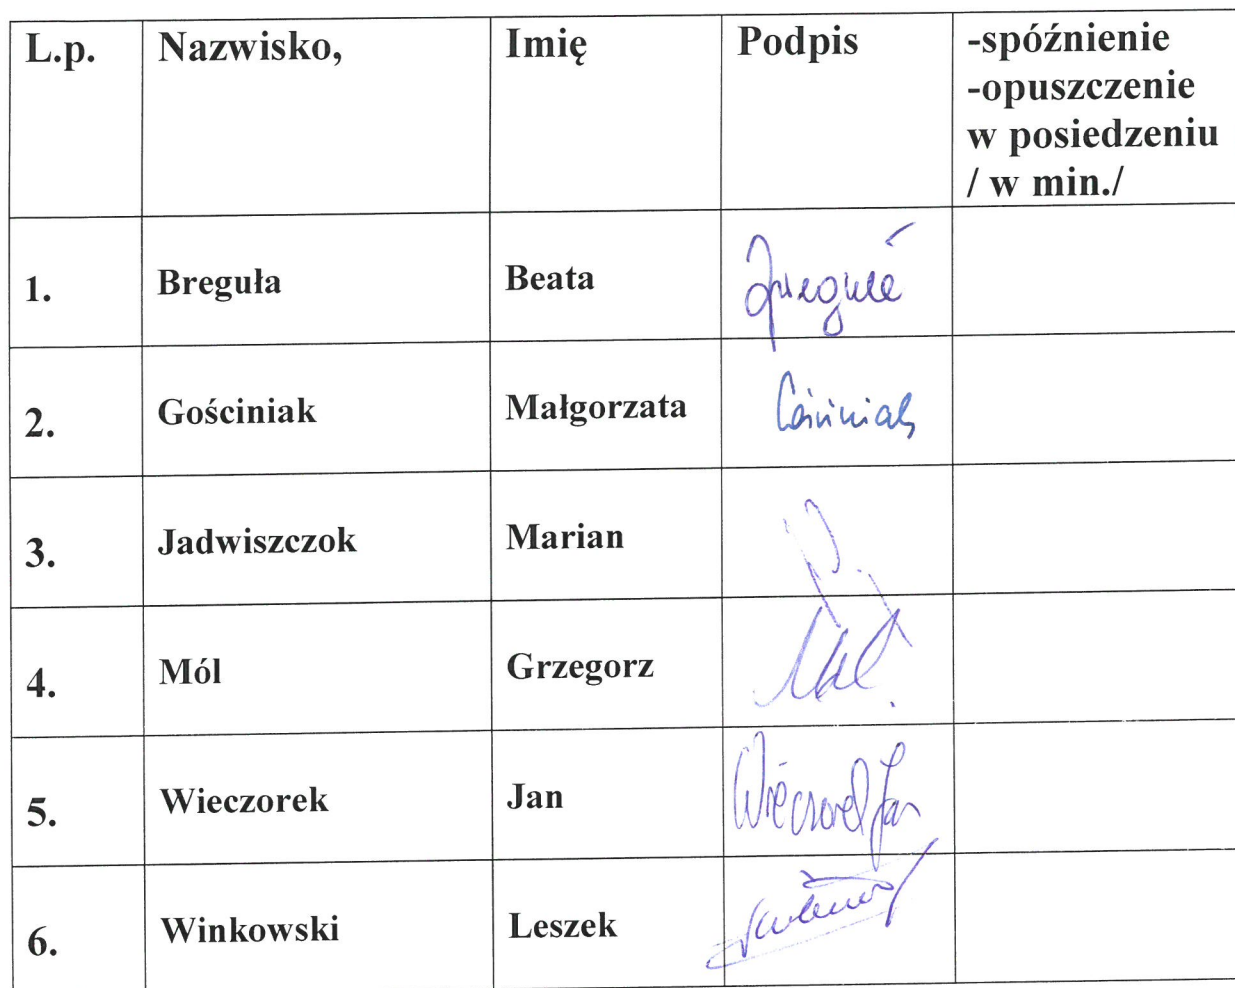 L.p. Nazwisko, Imię Podpis -spóźnienie
-opuszczenie
w posiedzeniu
/ w min./
1. Breguła Beata
2. Gościniak Małgorzata
3. Jadwiszczok Marian
4. Mól Grzegorz
5. Wieczorek Jan Wieczorek Jan
6. Winkowski Leszek